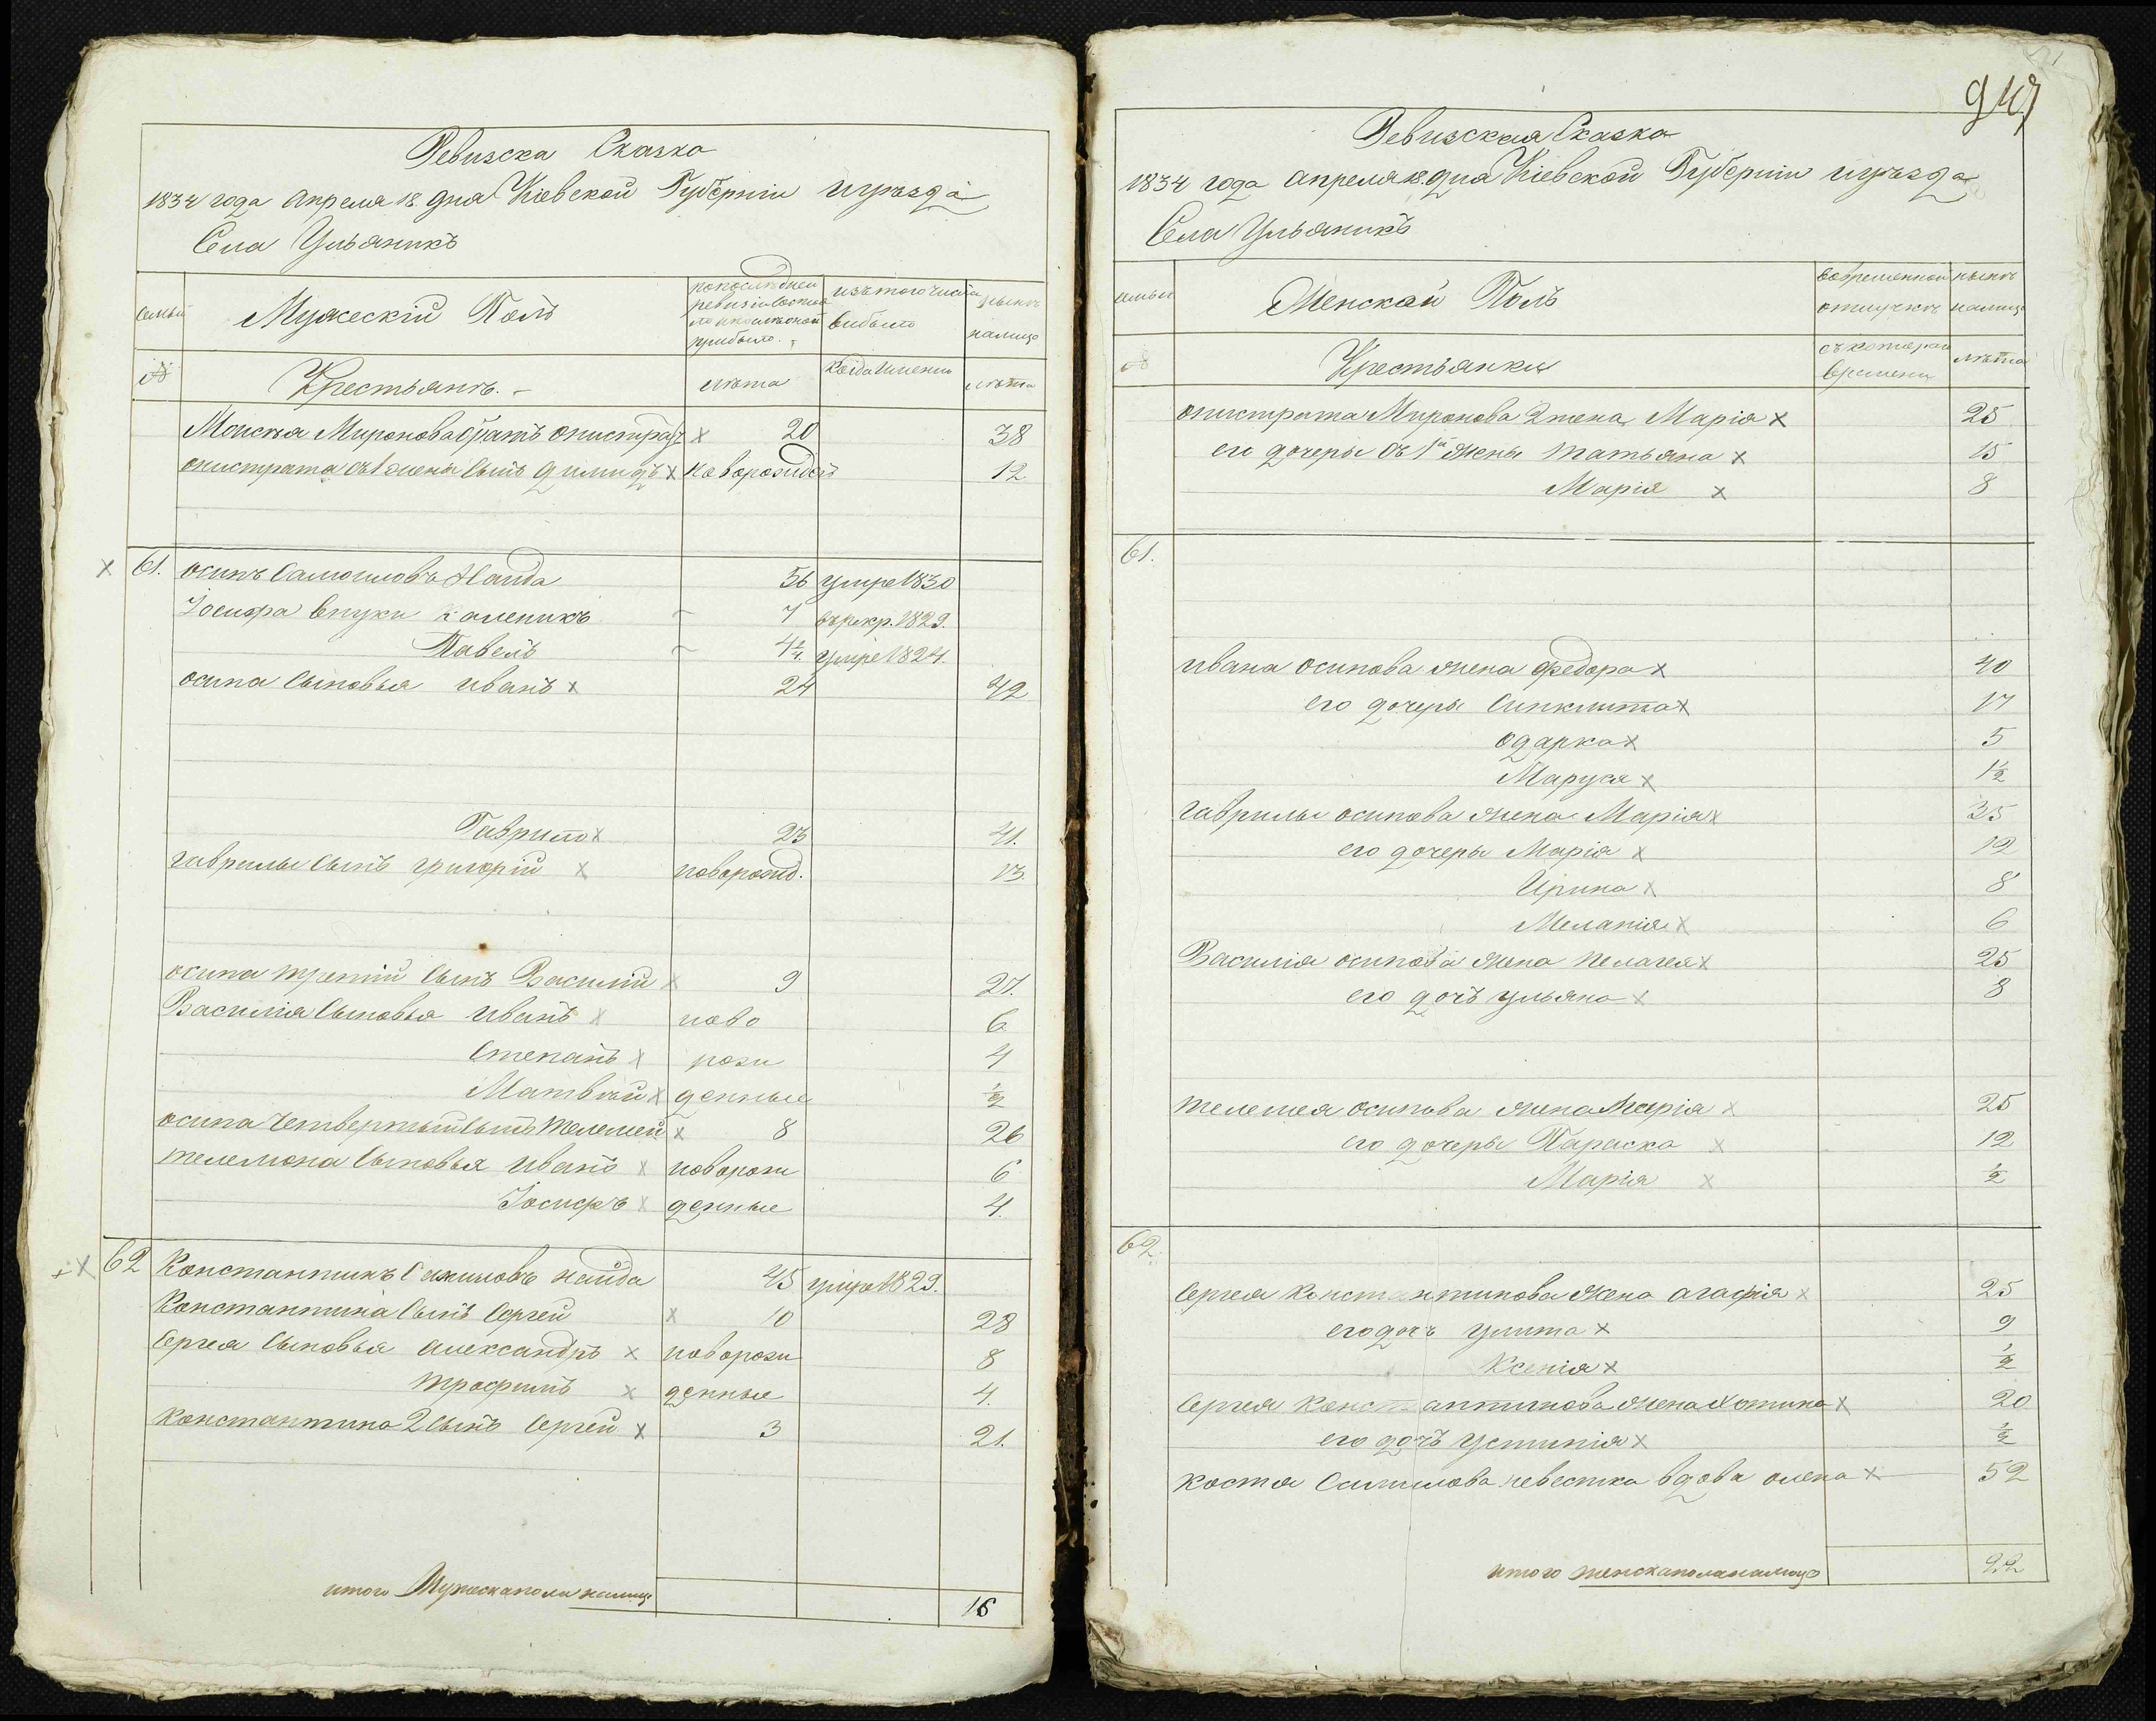 Ревизска Сказка
1834 года апреля 18 дня Кіевской Губерніи иуезда
Села Ульяникъ
Семьи
Мужескій Полъ
попоследней ревизіи состояло ипослеоной прибыло.
изътого числа выбыло
ныне налицо
№
Крестьяне. -
лета
Когда именно
лета
Моисея Миронова братъ онистратъ х 20 38
онистрата отъ 1 жены сынъ димидъ х новорожден 12
х 61. осипъ Самоиловъ Найда 56 умре 1830
Іосифа внуки каленикъ 7 врекр. 1829.
Павелъ 4¼. умре 1824.
осипа Сыновья иванъ х 24 42
Гаврило х 23 41.
гаврилы сынъ григорій х новорожд. 13.
осипа третій сынъ Василій х 9 27.
Василія Сыновья иванъ х ново 6
Степанъ х рож 4
Матвей х денные ½
осипа четвертый сынъ Телемей х 8 26
телемона Сыновья иванъ х новорож 6
Іосифъ х денные 4.
х 62 Константинъ Самиловъ найда 45 умре 1829.
Константина сынъ Сергей х 10 28
Сергея Сыновья александръ х новорож 8
трофимъ х денные 4.
константина 2 сынъ Сергей х 3 21.
итого Мужеска пола налицо 16
947
Ревизская Сказка
1834 года апреля 18 дня Кіевской Губерніи иуезда
Села Ульяникъ
семьи
Женскай Полъ
вовременной отлучке
ныне налицо
№
Крестьянки
съкоторого времени
лета
онистрата Миронова 2 жена Марія х 25
его дочеры отъ 1й жены татьяна х 15
Марія х 8
61.
ивана осипова жена федора х 40
его дочеры Синклита х 17
одарка х 5
Маруся х 1½
гаврилы осипова жена Марія х 35
его дочеры Марія х 12
Ирина х 8
Меланія х 6
Василія осипова жена пелагея х 25
его дочъ ульяна х 8
телемея осипова жена Марія х 25
его дочеры Параска х 12
Марія х ½
62.
Сергея Константинова жена агафія х 25
его дочъ улита х 9
Ксенія х ½
Сергея Константинова жена Хотина х 20
его дочъ устинія х ½
костя Самилова невестка вдова олена х 52
итого женска пола налицо 22